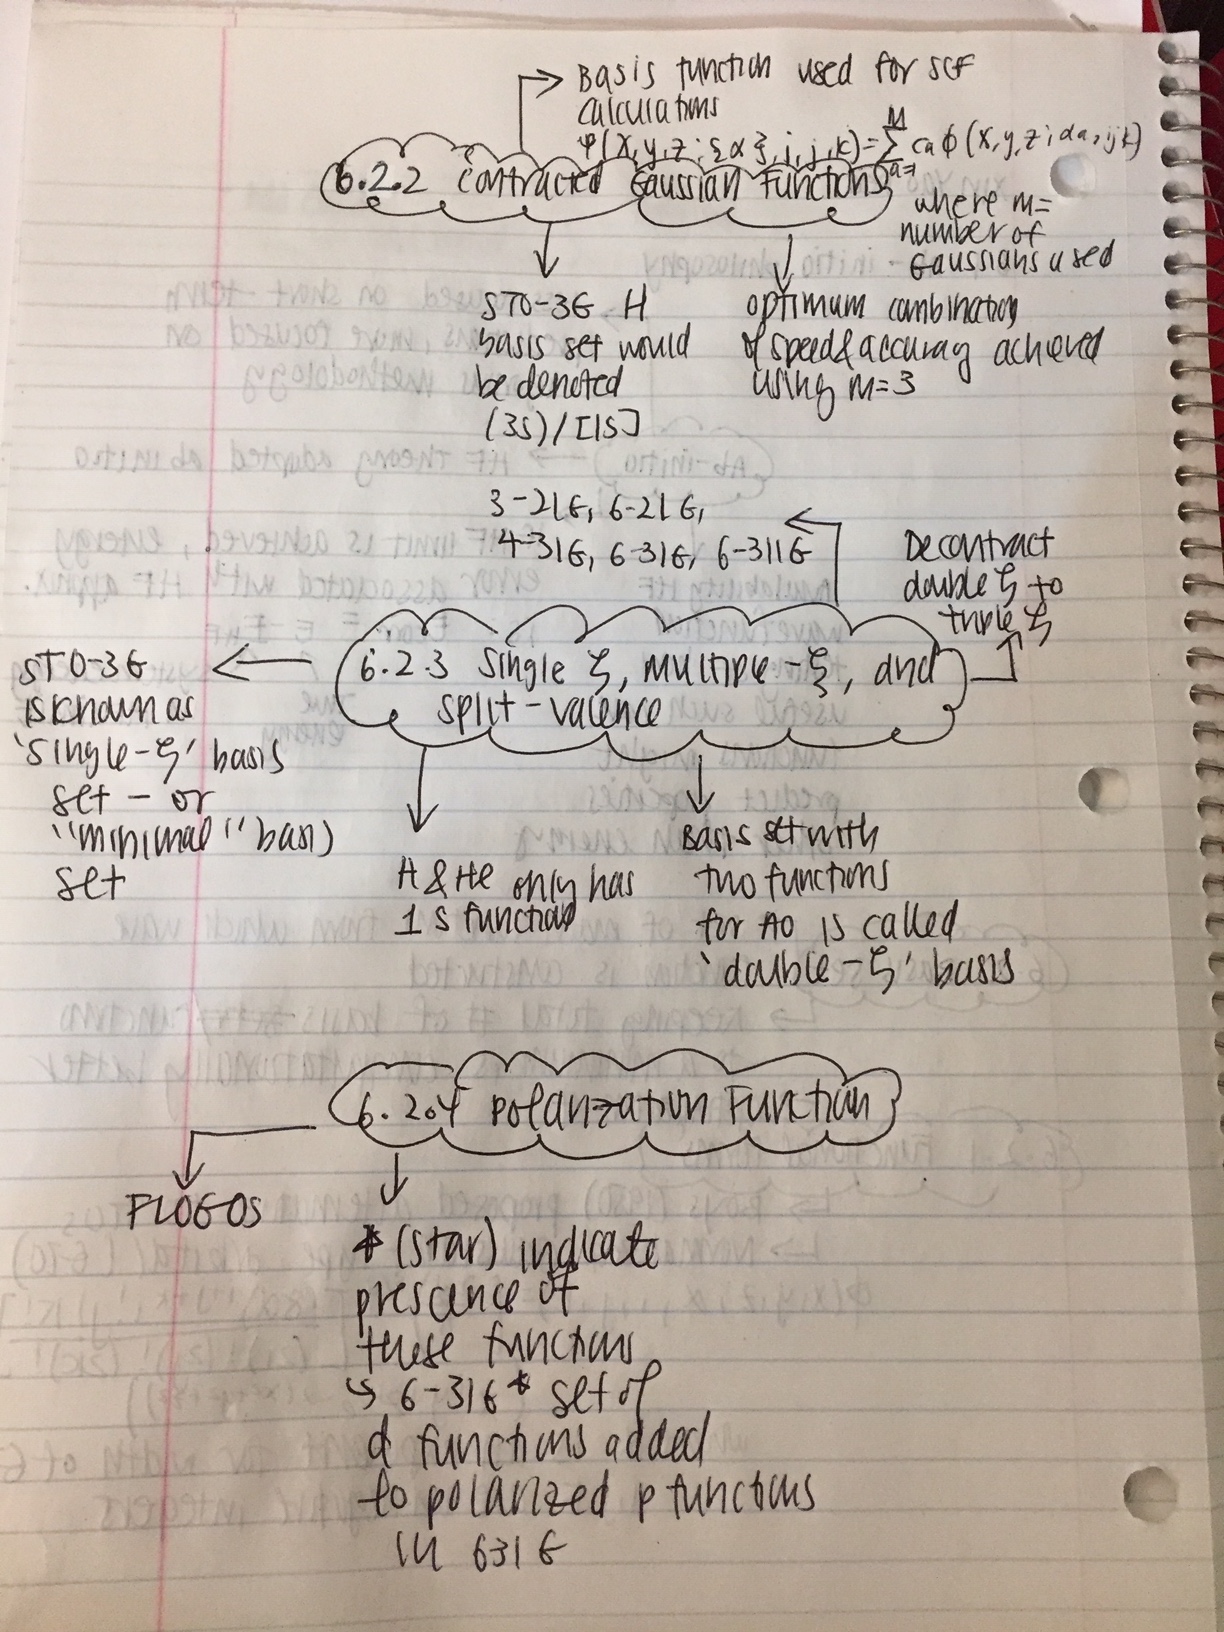 Basis function used for SCF
calculations
φ(x,y,z;{α},i,j,k)=∑ᴹₐ₌₁ caϕ(x,y,z;αa,ijk)
6.2.2 Contracted Gaussian Functions
where M=
number of
Gaussians used
STO-3G H
basis set would
be denoted
(3S)/[1S]
optimum combination
of speed & accuracy achieved
using M=3
3-21G, 6-21G,
4-31G, 6-31G, 6-311G
Decontract
double ζ to
triple ζ
6.2.3 Single ζ, Multiple-ζ, and
split-valence
STO-3G
is known as
'single-ζ' basis
set - or
"minimal" basis
set
H & He only has
1 S function
Basis set with
two functions
for AO is called
'double-ζ' basis
6.2.4 Polarization Function
FLOGOS
* (star) indicate
prescence of
these functions
↳ 6-31G* set of
d functions added
to polarized p functions
in 631G